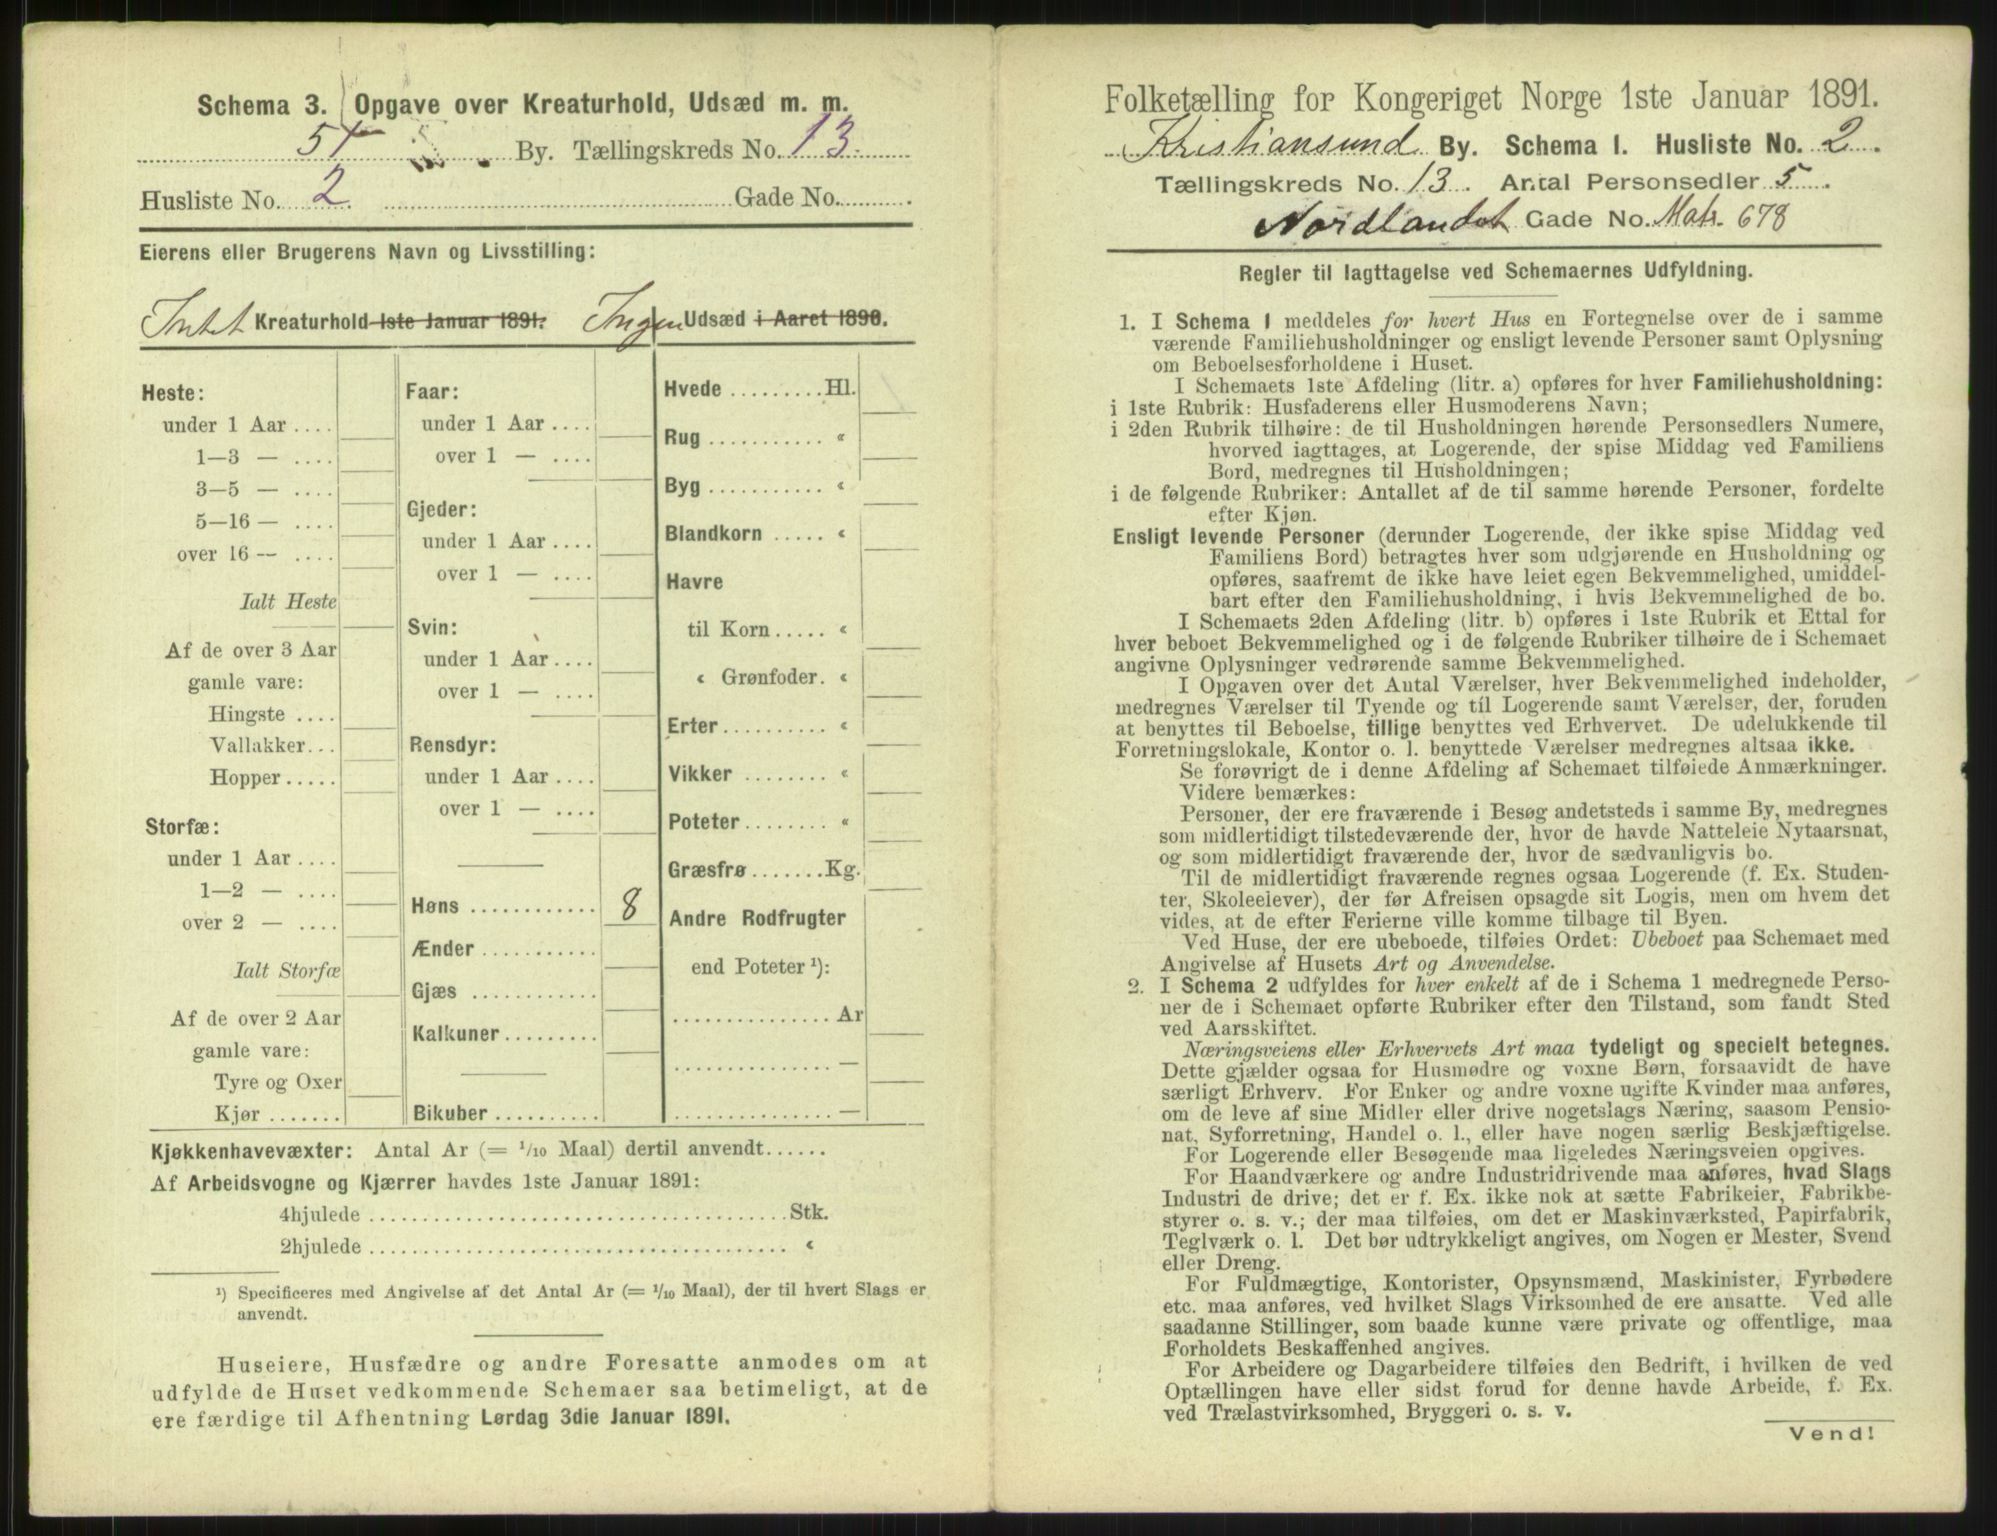 Schema 3. Opgave over Kreaturhold, Udsæd m. m.
By. Tællingskreds No. 13.
Husliste No. 2. Gade No.
Eierens eller Brugerens Navn og Livsstilling:
Intet Kreaturhold 1ste Januar 1891. Ingen Udsæd i Aaret 1890.
Heste:
under 1 Aar ....
1—3 — ....
3—5 — ....
5—16 — ....
over 16 — ....
Ialt Heste
Af de over 3 Aar
gamle vare:
Hingste ....
Vallakker...
Hopper.....
Storfæ:
under 1 Aar ....
1—2 — ....
over 2 — ....
Ialt Storfæ
Af de over 2 Aar
gamle vare:
Tyre og Oxer
Kjør .......
Faar:
under 1 Aar ....
over 1 — ....
Gjeder:
under 1 Aar ....
over 1 — ....
Svin:
under 1 Aar ....
over 1 — ....
Rensdyr:
under 1 Aar ....
over 1 — ....
Høns ............ 8
Ænder ...........
Gjæs ............
Kalkuner.........
Bikuber ..........
Hvede .........Hl.
Rug ........... “
Byg ........... “
Blandkorn ..... “
Havre
til Korn..... “
“ Grønfoder. “
Erter .......... “
Vikker ........ “
Poteter ........ “
Græsfrø .......Kg.
Andre Rodfrugter
end Poteter ¹):
............... Ar
............... —
............... —
Kjøkkenhavevæxter: Antal Ar (= 1/10 Maal) dertil anvendt......
Af Arbeidsvogne og Kjærrer havdes 1ste Januar 1891:
4hjulede ........................................Stk.
2hjulede ........................................ “
¹) Specificeres med Angivelse af det Antal Ar (= 1/10 Maal), der til hvert Slags er
anvendt.
Huseiere, Husfædre og andre Foresatte anmodes om at
udfylde de Huset vedkommende Schemaer saa betimeligt, at de
ere færdige til Afhentning Lørdag 3die Januar 1891.
Folketælling for Kongeriget Norge 1ste Januar 1891.
Kristiansund By. Schema I. Husliste No. 2.
Tællingskreds No. 13. Antal Personsedler 5.
Nordlandet Gade No. Matr. 678
Regler til Iagttagelse ved Schemaernes Udfyldning.
1. I Schema I meddeles for hvert Hus en Fortegnelse over de i samme
værende Familiehusholdninger og ensligt levende Personer samt Oplysning
om Beboelsesforholdene i Huset.
I Schemaets 1ste Afdeling (litr. a) opføres for hver Familiehusholdning:
i 1ste Rubrik: Husfaderens eller Husmoderens Navn;
i 2den Rubrik tilhøire: de til Husholdningen hørende Personsedlers Numere,
hvorved iagttages, at Logerende, der spise Middag ved Familiens
Bord, medregnes til Husholdningen;
i de følgende Rubriker: Antallet af de til samme hørende Personer, fordelte
efter Kjøn.
Ensligt levende Personer (derunder Logerende, der ikke spise Middag ved
Familiens Bord) betragtes hver som udgjørende en Husholdning og
opføres, saafremt de ikke have leiet egen Bekvemmelighed, umiddel-
bart efter den Familiehusholdning, i hvis Bekvemmelighed de bo.
I Schemaets 2den Afdeling (litr. b) opføres i 1ste Rubrik et Ettal for
hver beboet Bekvemmelighed og i de følgende Rubriker tilhøire de i Schemaet
angivne Oplysninger vedrørende samme Bekvemmelighed.
I Opgaven over det Antal Værelser, hver Bekvemmelighed indeholder,
medregnes Værelser til Tyende og til Logerende samt Værelser, der, foruden
at benyttes til Beboelse, tillige benyttes ved Erhvervet. De udelukkende til
Forretningslokale, Kontor o. l. benyttede Værelser medregnes altsaa ikke.
Se forøvrigt de i denne Afdeling af Schemaet tilføiede Anmærkninger.
Videre bemærkes:
Personer, der ere fraværende i Besøg andetsteds i samme By, medregnes
som midlertidigt tilstedeværende der, hvor de havde Natteleie Nytaarsnat,
og som midlertidigt fraværende der, hvor de sædvanligvis bo.
Til de midlertidigt fraværende regnes ogsaa Logerende (f. Ex. Studen-
ter, Skoleelever), der før Afreisen opsagde sit Logis, men om hvem det
vides, at de efter Ferierne ville komme tilbage til Byen.
Ved Huse, der ere ubeboede, tilføies Ordet: Ubeboet paa Schemaet med
Angivelse af Husets Art og Anvendelse.
2. I Schema 2 udfyldes for hver enkelt af de i Schema 1 medregnede Perso-
ner de i Schemaet opførte Rubriker efter den Tilstand, som fandt Sted
ved Aarsskiftet.
Næringsveiens eller Erhvervets Art maa tydeligt og specielt betegnes.
Dette gjælder ogsaa for Husmødre og voxne Børn, forsaavidt de have
særligt Erhverv. For Enker og andre voxne ugifte Kvinder maa anføres,
om de leve af sine Midler eller drive nogetslags Næring, saasom Pensio-
nat, Syforretning, Handel o. l., eller have nogen særlig Beskjæftigelse.
For Logerende eller Besøgende maa ligeledes Næringsveien opgives.
For Haandværkere og andre Industridrivende maa anføres, hvad Slags
Industri de drive; det er f. Ex. ikke nok at sætte Fabrikeier, Fabrikbe-
styrer o. s. v.; der maa tilføies, om det er Maskinværksted, Papirfabrik,
Teglværk o. l. Det bør udtrykkeligt angives, om Nogen er Mester, Svend
eller Dreng.
For Fuldmægtige, Kontorister, Opsynsmænd, Maskinister, Fyrbødere
etc. maa anføres, ved hvilket Slags Virksomhed de ere ansatte. Ved alle
saadanne Stillinger, som baade kunne være private og offentlige, maa
Forholdets Beskaffenhed angives.
For Arbeidere og Dagarbeidere tilføies den Bedrift, i hvilken de ved
Optællingen have eller sidst forud for denne havde Arbeide, f. Ex.
ved Trælastvirksomhed, Bryggeri o. s. v.
Vend!